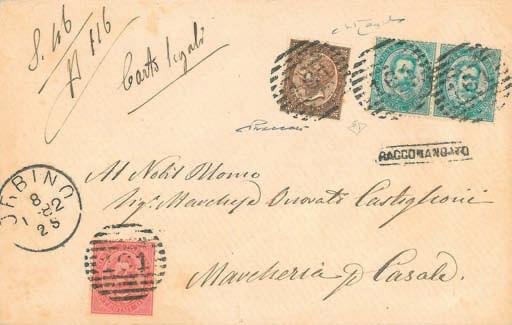 S. 106
N 116
Carte legali
RACCOMANDATO
Al Nobil Uomo
Sig. Marchese Onorato Castiglioni
URBINO
8 2
1 25
Marcheria p Casale.